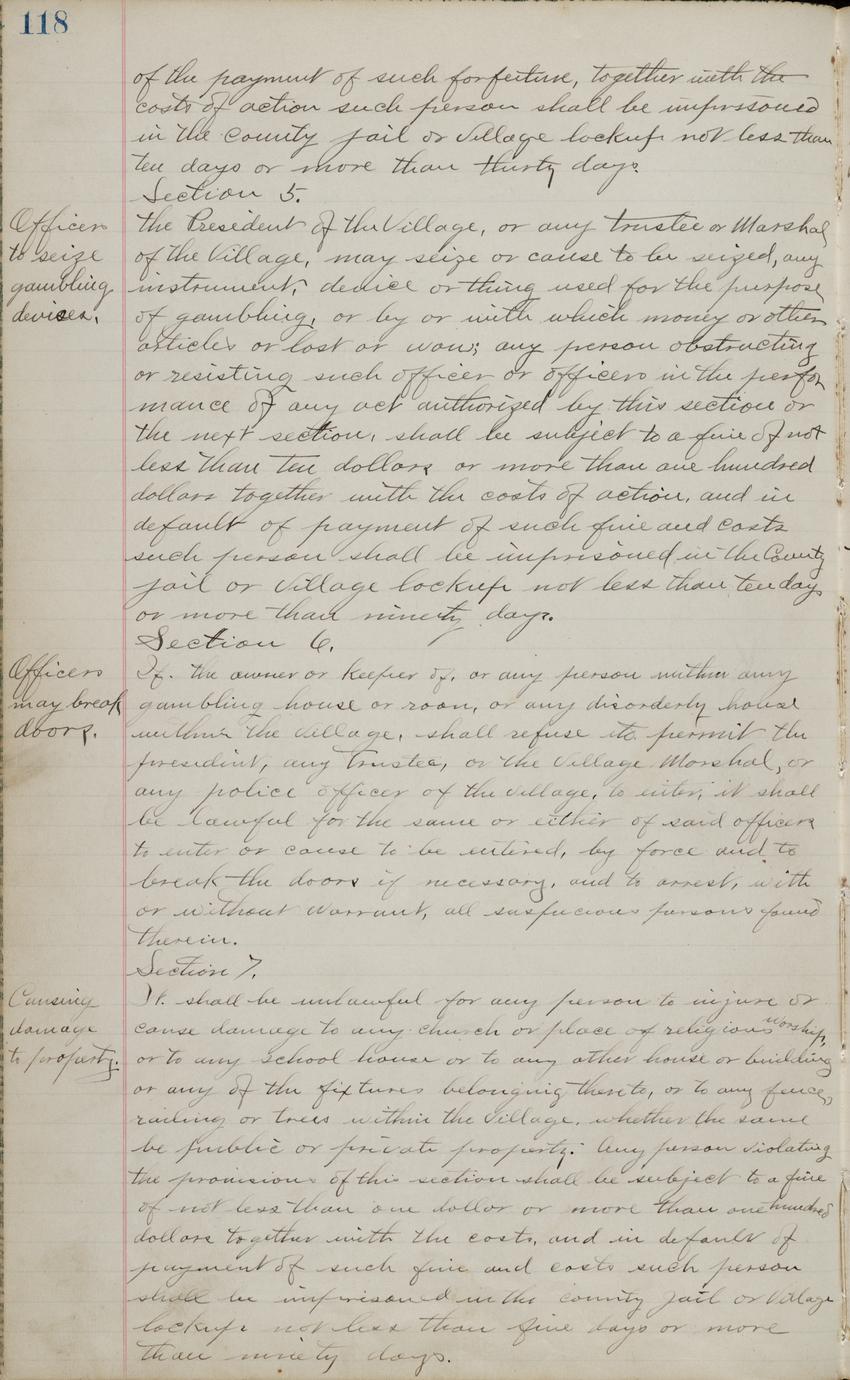 118
of the payment of such forfeiture, together with the
costs of action such person shall be imprisoned
in the county jail or Village lockup not less than
ten days or more than thirty days.
Section 5.
Officers
to seize
gambling
devises.
the President of the Village, or any trustee or Marshal
of the Village, may seize or cause to be seized, any
instrument, device or thing used for the purpose
of gambling, or by or with which money or other
articles or lost or won; any person obstructing
or resisting such officer or officers in the perfor
mance of any act authorized by this section or
the next section, shall be subject to a fine of not
less than ten dollars or more than one hundred
dollars together with the costs of action, and in
default of payment of such fine and costs
such person shall be imprisoned in the County
jail or Village lockup not less than ten days
or more than ninety days.
Section 6.
Officers
may break
doors.
If the owner or keeper of, or any person within any
gambling house or room, or any disorderly house
within the Village, shall refuse to permit the
president, any trustee, or the Village Marshal, or
any police officer of the village, to enter, it shall
be lawful for the same or either of said officers
to enter or cause to be entired, by force and to
break the doors if necessary, and to arrest, with
or without warrant, all suspicious persons found
therein.
Section 7.
Causing
damage
to property.
It shall be unlawful for any person to injure or
cause damage to any church or place of religious worship,
or to any school house or to any other house or building
or any of the fixtures belonging thereto, or to any fence,
railing or trees within the Village, whether the same
be public or private property. Any person violating
the provisions of this section shall be subject to a fine
of not less than one dollar or more than one hundred
dollars together with the costs, and in default of
payment of such fine and costs such person
shall be imprisoned in the county jail or Village
lockup not less than five days or more
than ninety days.